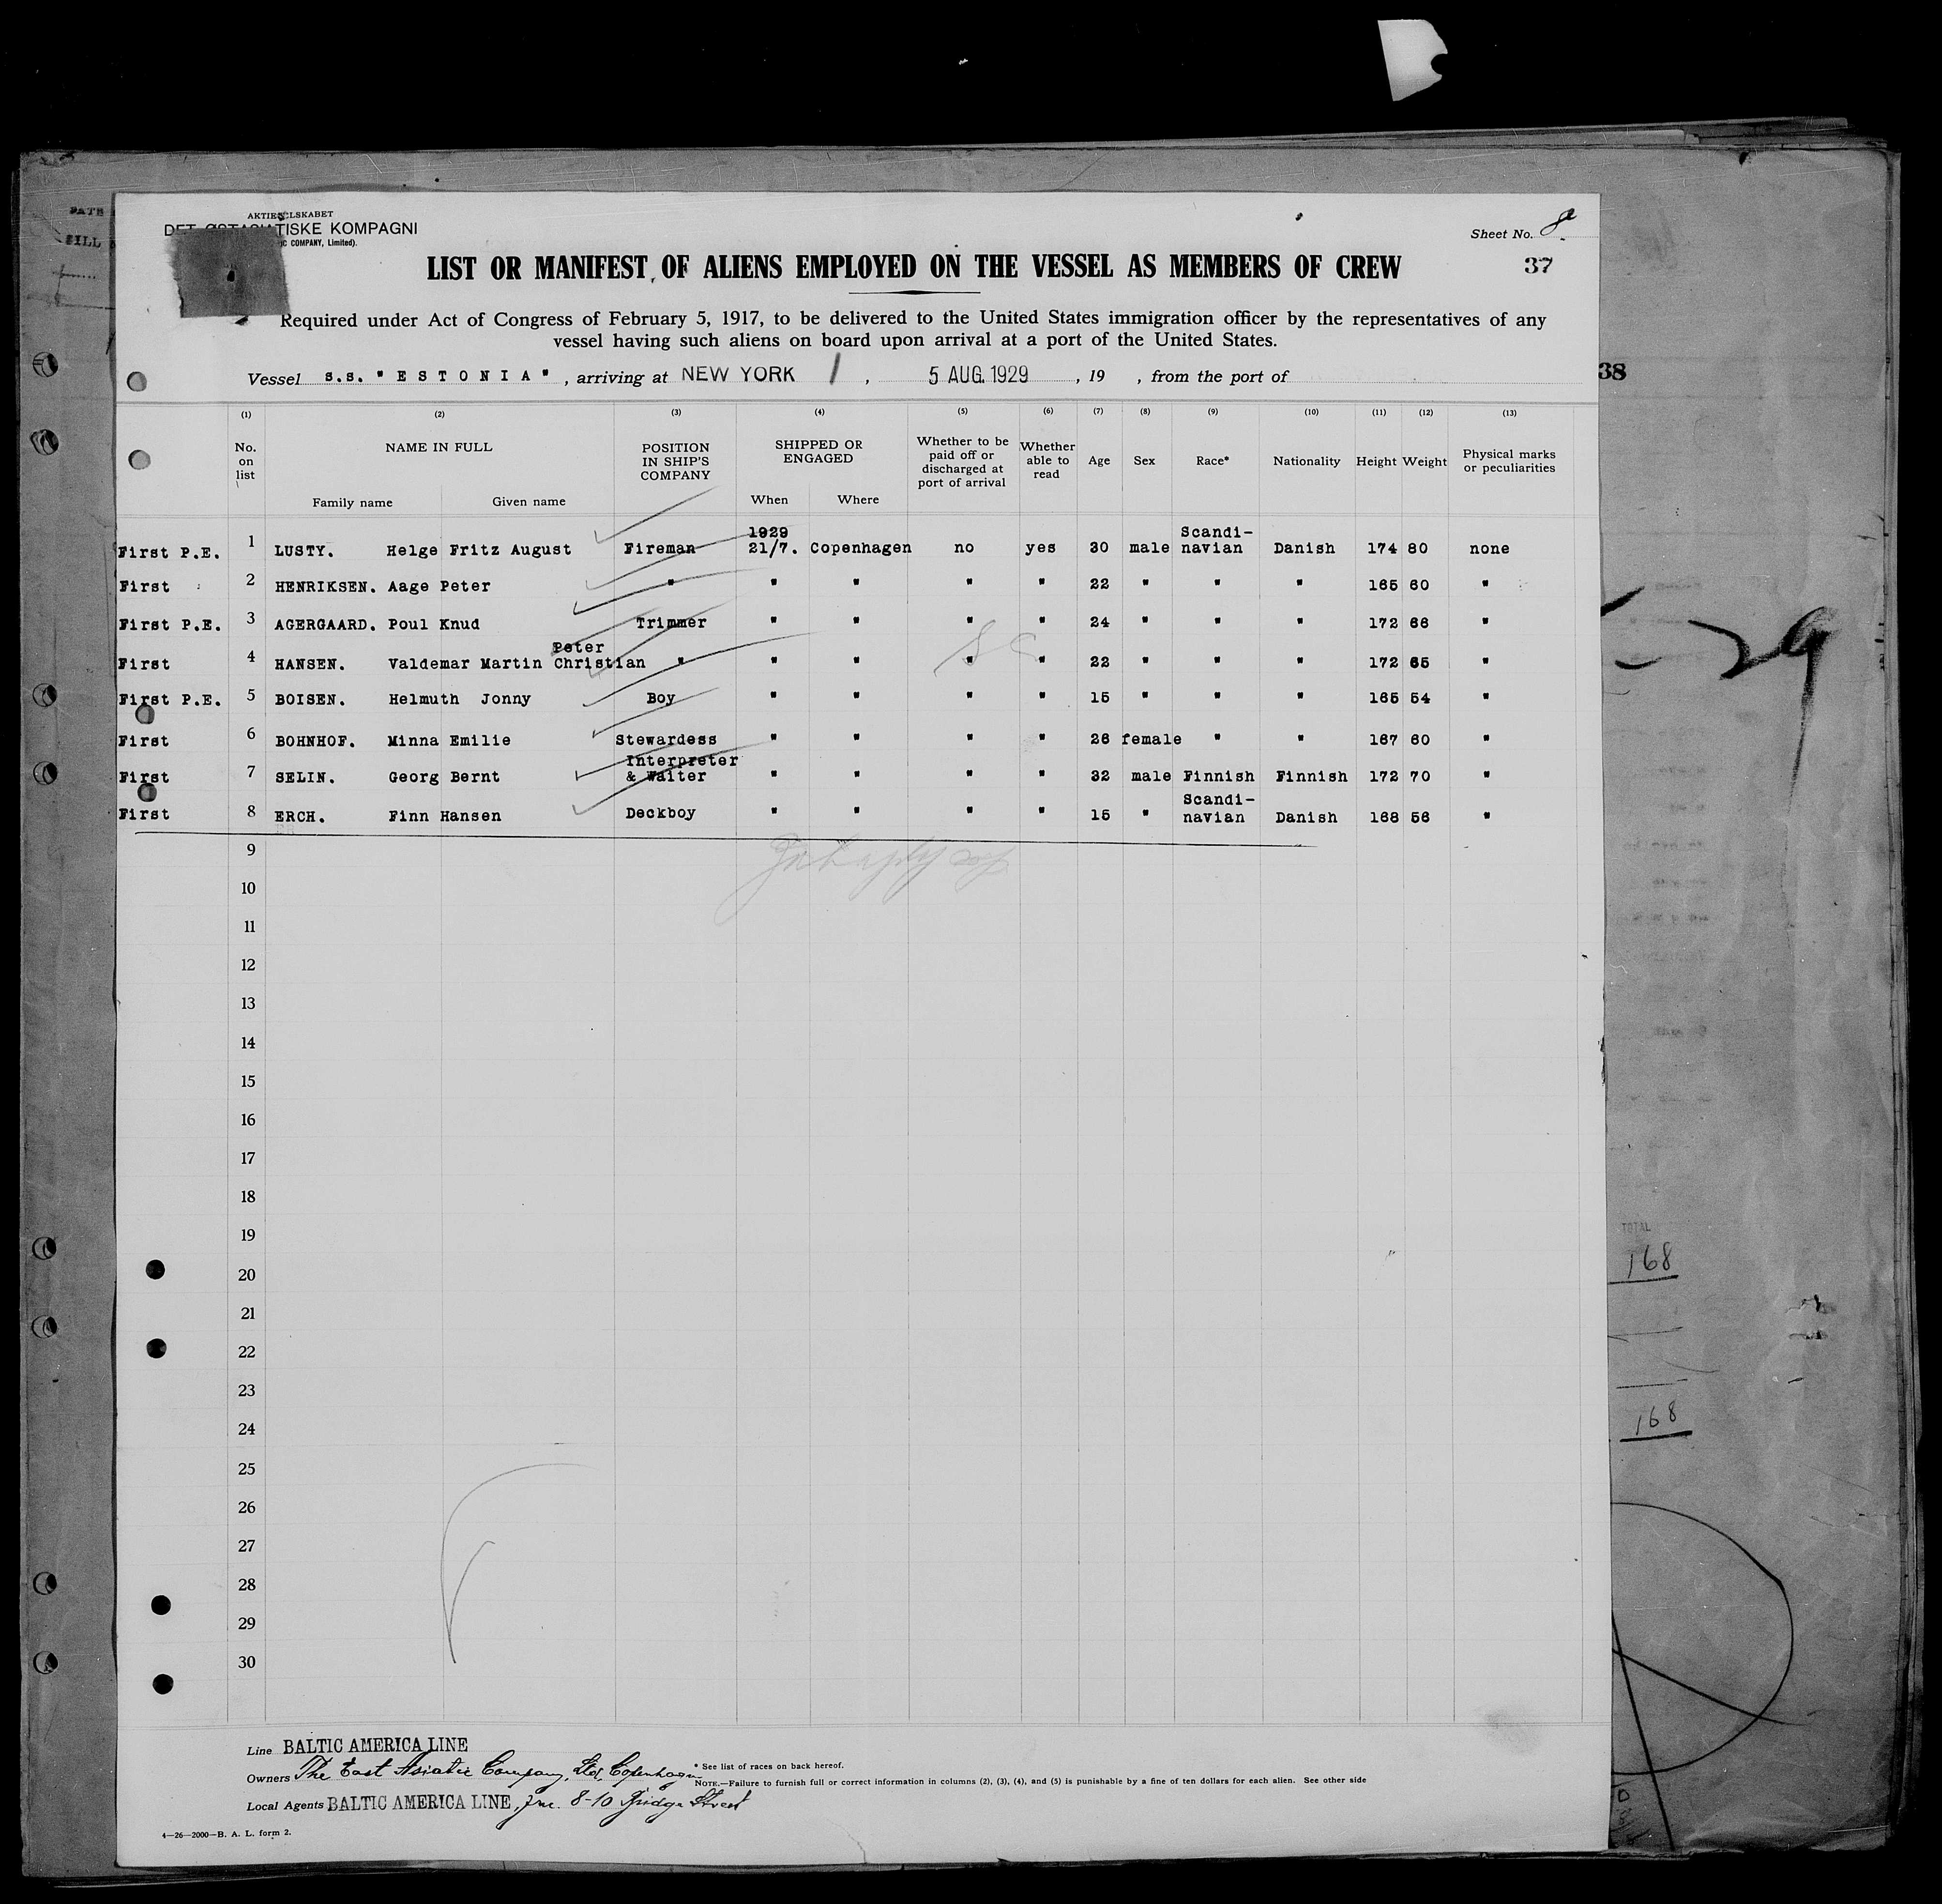 AKTIESELSKABET
DET ØSTASIATISKE KOMPAGNI
COMPANY, Limited).
Sheet No. 8
LIST OR MANIFEST OF ALIENS EMPLOYED ON THE VESSEL AS MEMBERS OF CREW
37
Required under Act of Congress of February 5, 1917, to be delivered to the United States immigration officer by the representatives of any
vessel having such aliens on board upon arrival at a port of the United States.
Vessel s.s. "ESTONIA" , arriving at NEW YORK , 5 AUG. 1929 , 19 , from the port of
38
(1) (2) (3) (4) (5) (6) (7) (8) (9) (10) (11) (12) (13)
No. on list NAME IN FULL Family name Given name POSITION IN SHIP'S COMPANY SHIPPED OR ENGAGED When Where Whether to be paid off or discharged at port of arrival Whether able to read Age Sex Race* Nationality Height Weight Physical marks or peculiarities
First P.E. 1 LUSTY. Helge Fritz August Fireman 1929 21/7. Copenhagen no yes 30 male Scandi-navian Danish 174 80 none
First 2 HENRIKSEN. Aage Peter " " " " " 22 " " " 165 60 "
First P.E. 3 AGERGAARD. Poul Knud Trimmer " " " " 24 " " " 172 66 "
First 4 HANSEN. Valdemar Martin Peter Christian " " " " " 22 " " " 172 65 "
First P.E. 5 BOISEN. Helmuth Jonny Boy " " " " 15 " " " 165 54 "
First 6 BOHNHOF. Minna Emilie Stewardess " " " " 26 female " " 167 60 "
First 7 SELIN. Georg Bernt Interpreter & Waiter " " " " 32 male Finnish Finnish 172 70 "
First 8 ERCH. Finn Hansen Deckboy " " " " 15 " Scandi-navian Danish 168 56 "
9
10
11
12
13
14
15
16
17
18
19
20
21
22
23
24
25
26
27
28
29
30
TOTAL
168
168
Line BALTIC AMERICA LINE
Owners The East Asiatic Company, Ltd, Copenhagen
* See list of races on back hereof.
NOTE.—Failure to furnish full or correct information in columns (2), (3), (4), and (5) is punishable by a fine of ten dollars for each alien. See other side
Local Agents BALTIC AMERICA LINE, Inc. 8-10 Bridge Street
4—26—2000—B. A. L. form 2.